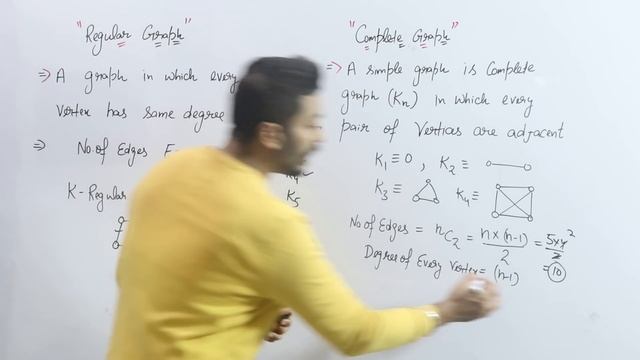 "Regular Graph"
⇒ A graph in which every
Vertex has same degree
⇒ No. of Edges E
K-Regular
K₅
"Complete Graph"
⇒ A simple graph is Complete
graph (Kn) in which every
pair of Vertices are adjacent
K₁ ≡ 0 , K₂ ≡
K₃ ≡ K₄ ≡
No of Edges = nC₂ = n×(n-1)/2 = 5×4²/2
Degree of Every Vertex = (n-1) = 10